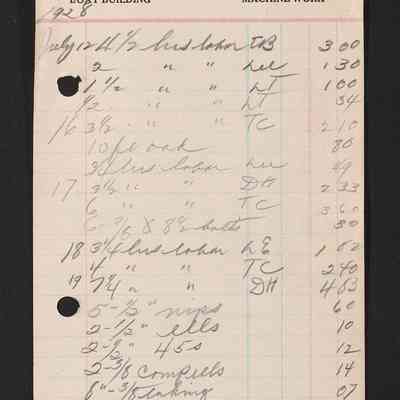 BOAT BUILDING MACHINE WORK
1928
July 12 4 1/2 hrs labor TB 3 00
2 " " Lee 1 30
1 1/2 " " LT 1 00
1/2 " " LT 34
16 3 1/2 " " TC 2 10
10 ft oak 80
3/4 hrs labor Lee 49
17 3 1/2 " " DH 2 33
6 " " TC 3 60
3/8 x 8 1/2 bolts 30
18 3/4 hrs labor LE 1 02
4 " " TC 2 40
19 7 1/4 " " DH 4 83
5 - 1/2" nips 60
2 - 1/2" ells 10
2 - 1/2" 45s 12
2 - 3/8 compells 14
6" - 3/8 07